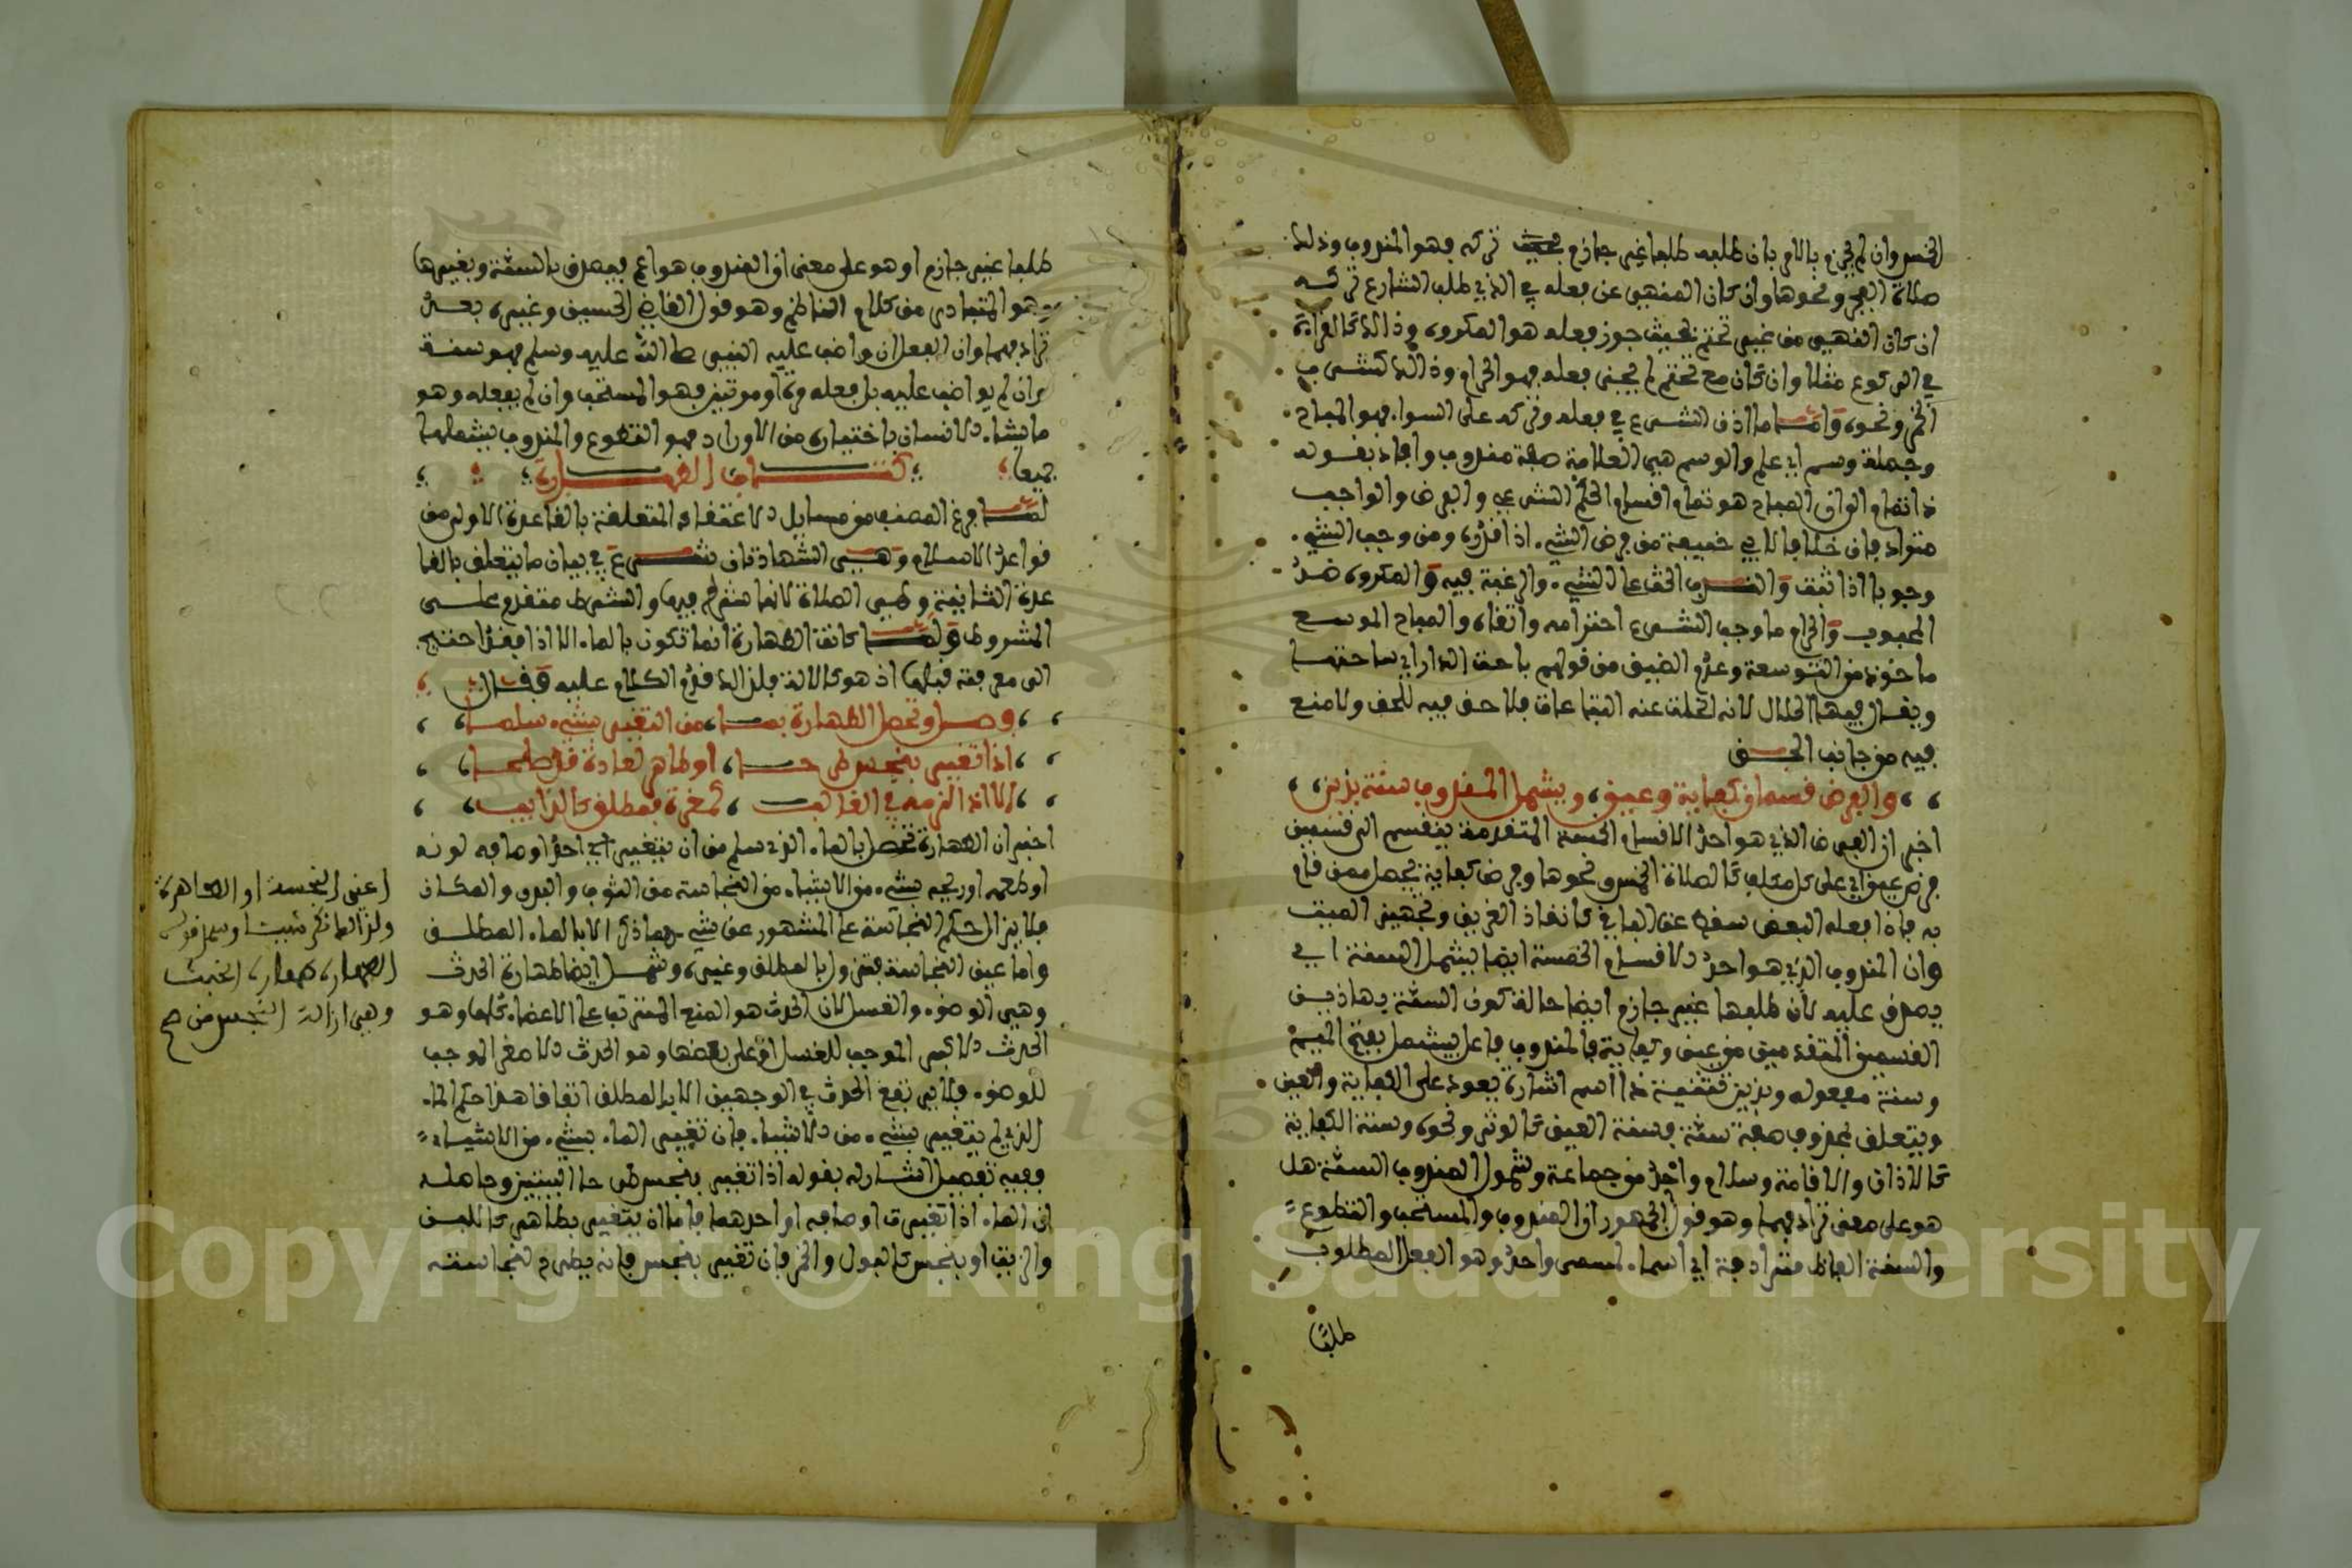 الخمس وان لم يجزم بالامر بان طلبه طلبا غير جازم بحيث تركه فهو المندوب وذلك
صلاة الفجر ونحوها وان كان المنهي عن فعله اي الذي طلب الشارع تركه
ان كان النهي من غير تحتم بحيث جوز فعله هو المكروه وذالك كالقراءة
في الركوع مثلا وان كان مع تحتم لم يجز فعله فهو الحرام وذالك كشرب
الخمر ونحوه واما ما اذن الشرع في فعله وتركه على السواء فهو المباح
وجملة وسم اي علم والوسم هي العلامة صفة مندوب وافاد بقوله
ذا تمام الى ان المباح هو تمام اقسام الحكم الشرعي والفرض والواجب
مترادفان خلافا لابي حنيفة من فرض الشيء اذا قدره ومن وجب الشيء
وجوبا اذا ثبت والندب الحث على الشيء والرغبة فيه والمكروه ضد
المحبوب والحرام ما وجب الشرع احترامه واتقاه والمباح الموسع
ماخوذ من التوسعة وعدم الضيق من قولهم باحة الدار اي ساحتها
ويقال فيه الحلال لانه انحلت عنه التباعات فلا حق فيه للخلق ولا منع
فيه من جانب الحق
والفرض قسمان كفاية وعين، ويشمل المندوب سنة بذين
اخبر ان الفرض الذي هو احد الاقسام الخمسة المتقدمة ينقسم الى قسمين
فرض عين اي على كل مكلف كالصلاة الخمس ونحوها وفرض كفاية يحصل ممن قام
به فاذا فعله البعض سقط عن الباقي كانقاذ الغريق وتجهيز الميت
وان المندوب الذي هو احد الاقسام الخمسة ايضا يشمل السنة اي
يصدق عليه لان طلبها غير جازم ايضا حالة كون السنة بهاذين
القسمين المتقدمين من عين وكفاية فالمندوب فاعل يشمل بفتح الميم
وسنة مفعوله وبذين تثنية ذا اسم اشارة يعود على الكفاية والعين
ويتعلق بمحذوف صفة سنة فسنة العين كالوتر ونحوه وسنة الكفاية
كالاذان والاقامة وسلام واحد من جماعة وشمول المندوب السنة هل
هو على معنى ترادفهما وهو قول الجمهور ان المندوب والمستحب والتطوع
والسنة الفاظ مترادفة اي اسماء لمسمى واحد وهو الفعل المطلوب
طلبا
طلبا غير جازم او هو على معنى ان المندوب هو اعم فيصدق بالسنة وبغيرها
وهو المتبادر من كلام الناظم وهو قول القاضي الحسين وغيره بعدم
ترادفهما وان الفعل ان واضب عليه النبي صلى الله عليه وسلم فهو سنة
وان لم يواضب عليه بل فعله مرة او مرتين فهو المستحب وان لم يفعله وهو
ما ينشاه الانسان باختياره من الاوراد فهو التطوع والمندوب يشملها
جميعا كتاب الطهارة
لما فرغ المصنف من مسايل الاعتقاد المتعلقة بالقاعدة الاولى من
قواعد الاسلام وهي الشهادتان شرع في بيان ما يتعلق بالقا
عدة الثانية وهي الصلاة لانها شرط فيها والشرط متقدم على
المشروط ولما كانت الطهارة انما تكون بالماء الا اذا فقد احتيج
الى معرفته قبلها اذ هو كالالة فلذالك قدم الكلام عليه وقال
فصل وتحصل الطهارة بما، من التغير بشيء سلما
اذا تغير بنجس طرحا، او طاهر لعادة قد صلحا
الا اذا لازمه في الغالب، كمغرة فمطلق كالذايب
اخبر ان الطهارة تحصل بالماء الذي سلم من ان يتغير احد اوصافه لونه
او طعمه او ريحه بشيء من الاشياء من النجاسة من الثوب والبدن والمكان
فلا يزال حكم النجاسة على المشهور عن شيء مما ذكر الا بالماء المطلق
واما عين النجاسة فتزول بالمطلق وغيره وشمل ايضا طهارة الحدث
وهي الوضوء والغسل لان الحدث هو المنع المترتب على الاعضاء كلها وهو
الحدث الاكبر الموجب للغسل او على بعضها وهو الحدث الاصغر الموجب
للوضوء فلا يرتفع الحدث في الوجهين الا بالمطلق اتفاقا هذا حكم الماء
الذي لم يتغير بشيء من الاشياء فان تغير الماء بشيء من الاشياء
ففيه تفصيل اشار له بقوله اذا تغير بنجس طرحا البيتين وحاصله
ان الماء اذا تغيرت اوصافه او احدها فاما ان يتغير بطاهر كاللبن
والزيت او بنجس كالبول والخمر فان تغير بنجس فانه يطرح لنجاسته
اعني النجسة او الطاهرة
الطهارة طهارة الخبث
وهي ازالة النجس من صح
Copyright © King Saud University